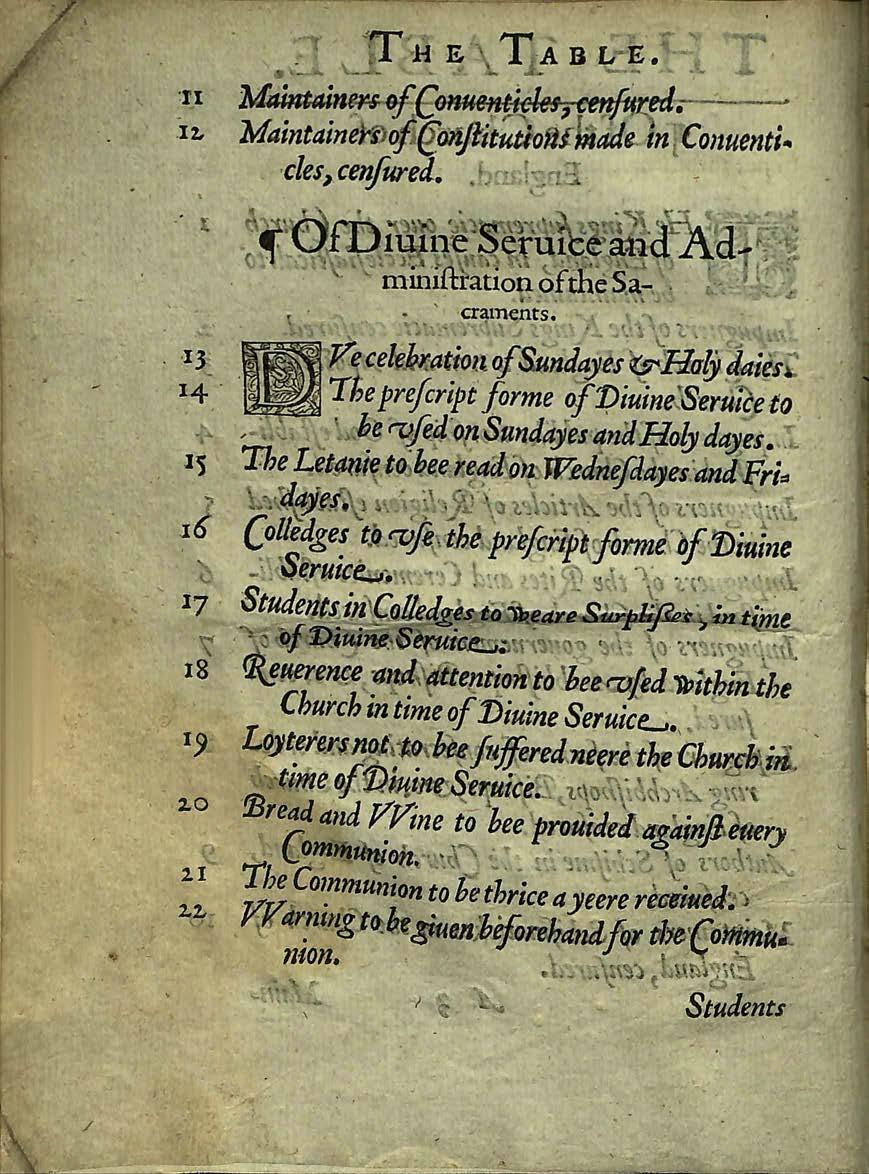 THE TABLE.
11 Maintainers of Conuenticles, cenſured.
12 Maintainers of Conſtitutions made in Conuenti-
cles, cenſured.
¶ Of Diuine Seruice and Ad-
miniſtration of the Sa-
craments.
13 DVe celebration of Sundayes & Holy daies.
14 The preſcript forme of Diuine Seruice to
be vſed on Sundayes and Holy dayes.
15 The Letanie to bee read on Wedneſdayes and Fri-
dayes.
16 Colledges to vſe the preſcript forme of Diuine
Seruice.
17 Students in Colledges to weare Surpliſſes, in time
of Diuine Seruice.
18 Reuerence and attention to bee vſed within the
Church in time of Diuine Seruice.
19 Loyterers not to bee ſuffered neere the Church in
time of Diuine Seruice.
20 Bread and VVine to bee prouided againſt euery
Communion.
21 The Communion to be thrice a yeere receiued.
22 VVarning to be giuen beforehand for the Commu-
nion.
Students